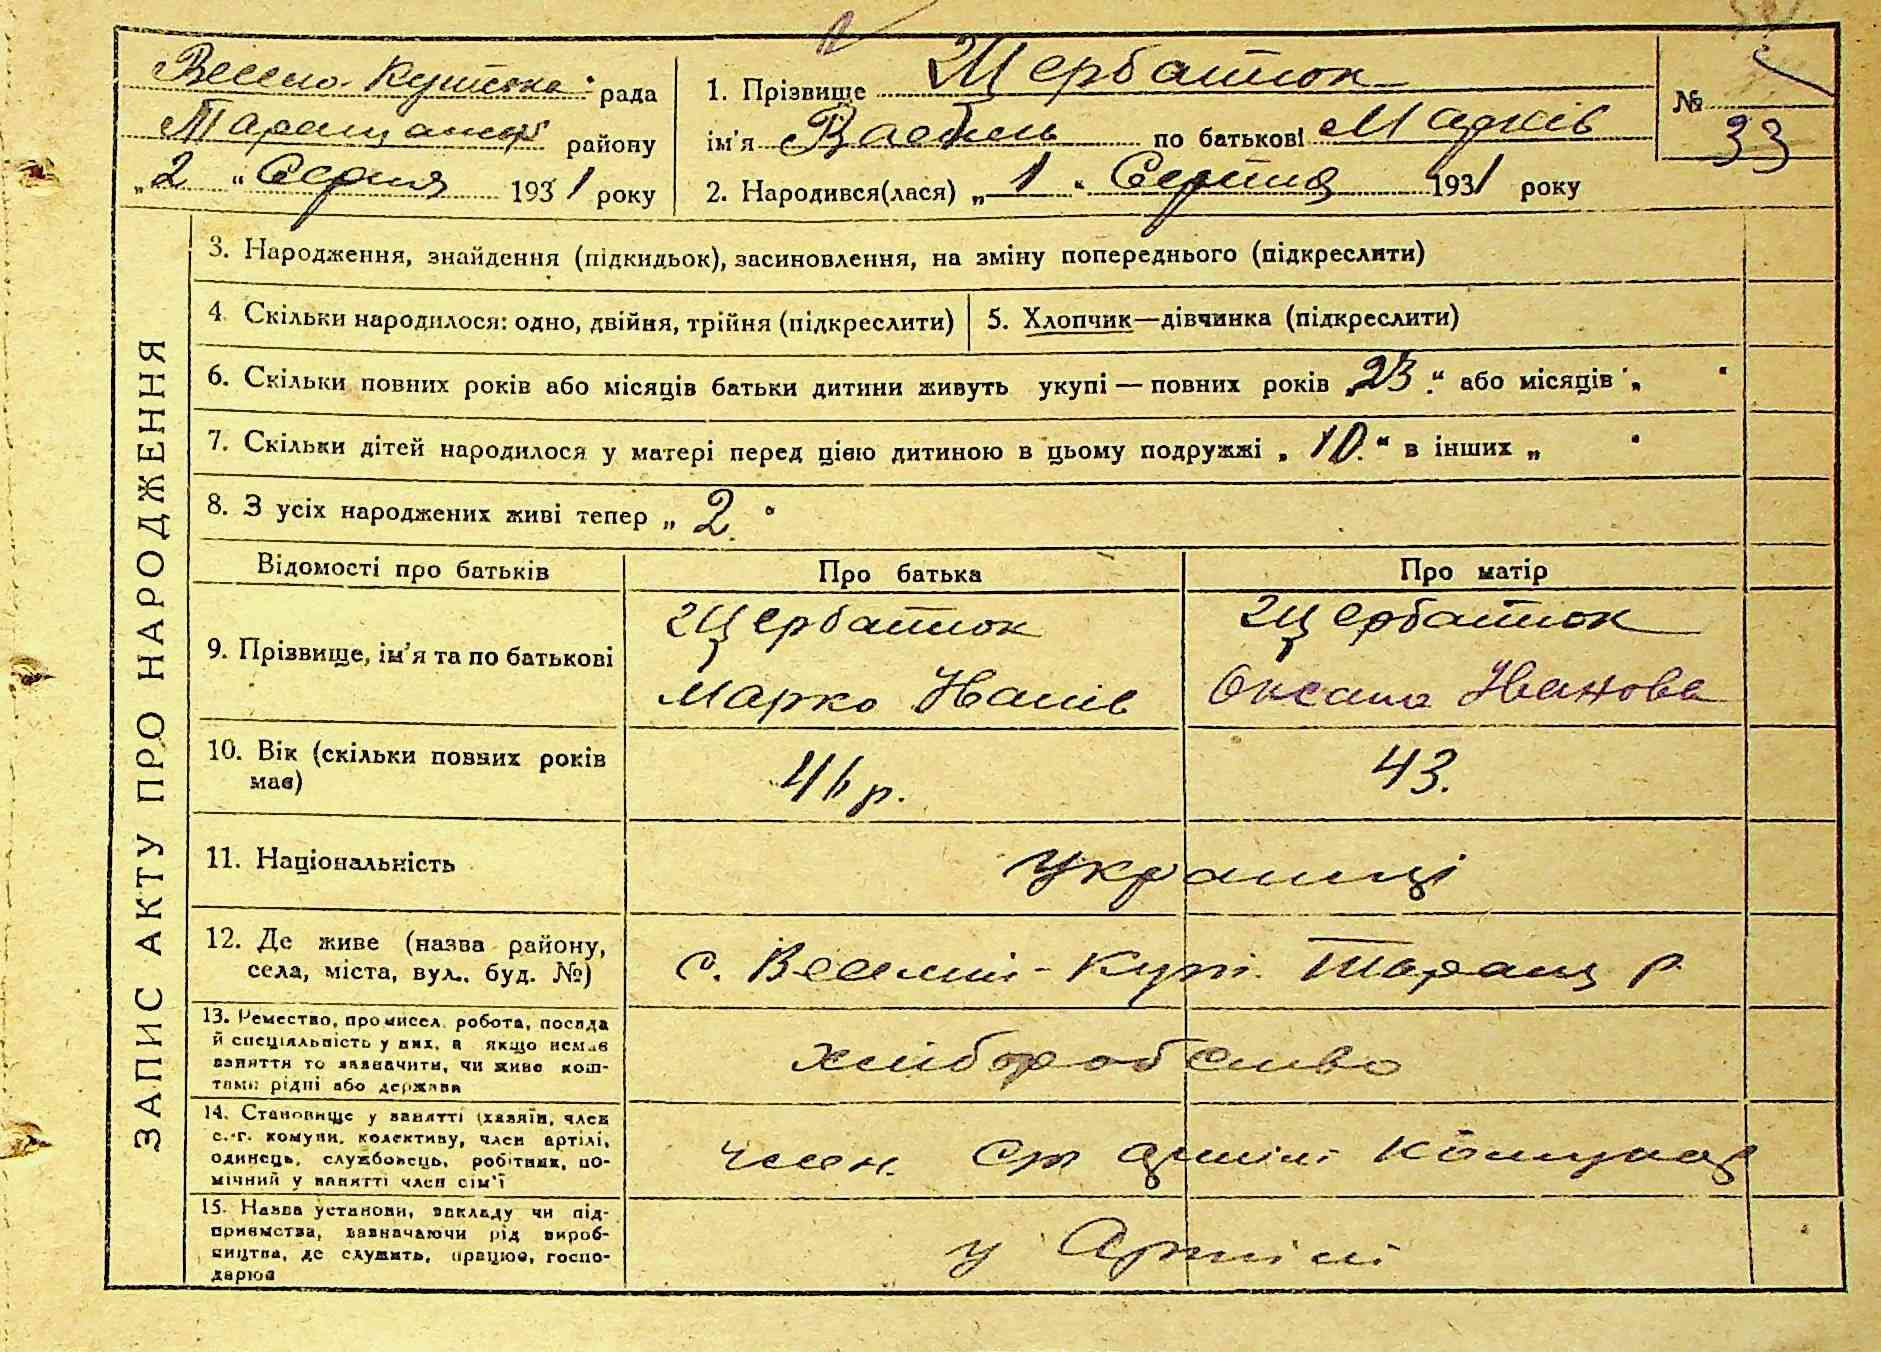 Весело-Кутська рада
Таращанськ району
„2" Серпня 1931 року
1. Прізвище Щербатюк
ім'я Василь по батькові Марків
2. Народився(лася) „1" Серпня 1931 року
№ 33
ЗАПИС АКТУ ПРО НАРОДЖЕННЯ
3. Народження, знайдення (підкидьок), засиновлення, на зміну попереднього (підкреслити)
4. Скільки народилося: одно, двійня, трійня (підкреслити)
5. Хлопчик—дівчинка (підкреслити)
6. Скільки повних років або місяців батьки дитини живуть укупі — повних років „23" або місяців „ "
7. Скільки дітей народилося у матері перед цією дитиною в цьому подружжі „10." в інших „ "
8. З усіх народжених живі тепер „2."
Відомості про батьків Про батька Про матір
9. Прізвище, ім'я та по батькові
Щербатюк
Марко Іванів
Щербатюк
Оксана Іванова
10. Вік (скільки повних років
має)
46 р.
43.
11. Національність
Українці
12. Де живе (назва району,
села, міста, вул., буд. №)
с. Веселий-Кут. Таращ р.
13. Ремество, промисел, робота, посада
й спеціяльність у них, а якщо немає
заняття то зазначити, чи живе кош-
тами рідні або держава
хліборобство
14. Становище у занятті (хазяїн, член
с.-г. комуни, колективу, член артілі,
одинець, службовець, робітник, по-
мічний у занятті член сім'ї
член. Ст артілі Комунар
15. Назва установи, закладу чи під-
приємства, зазначаючи рід вироб-
ництва, де служить, працює, госпо-
дарює
у Артілі